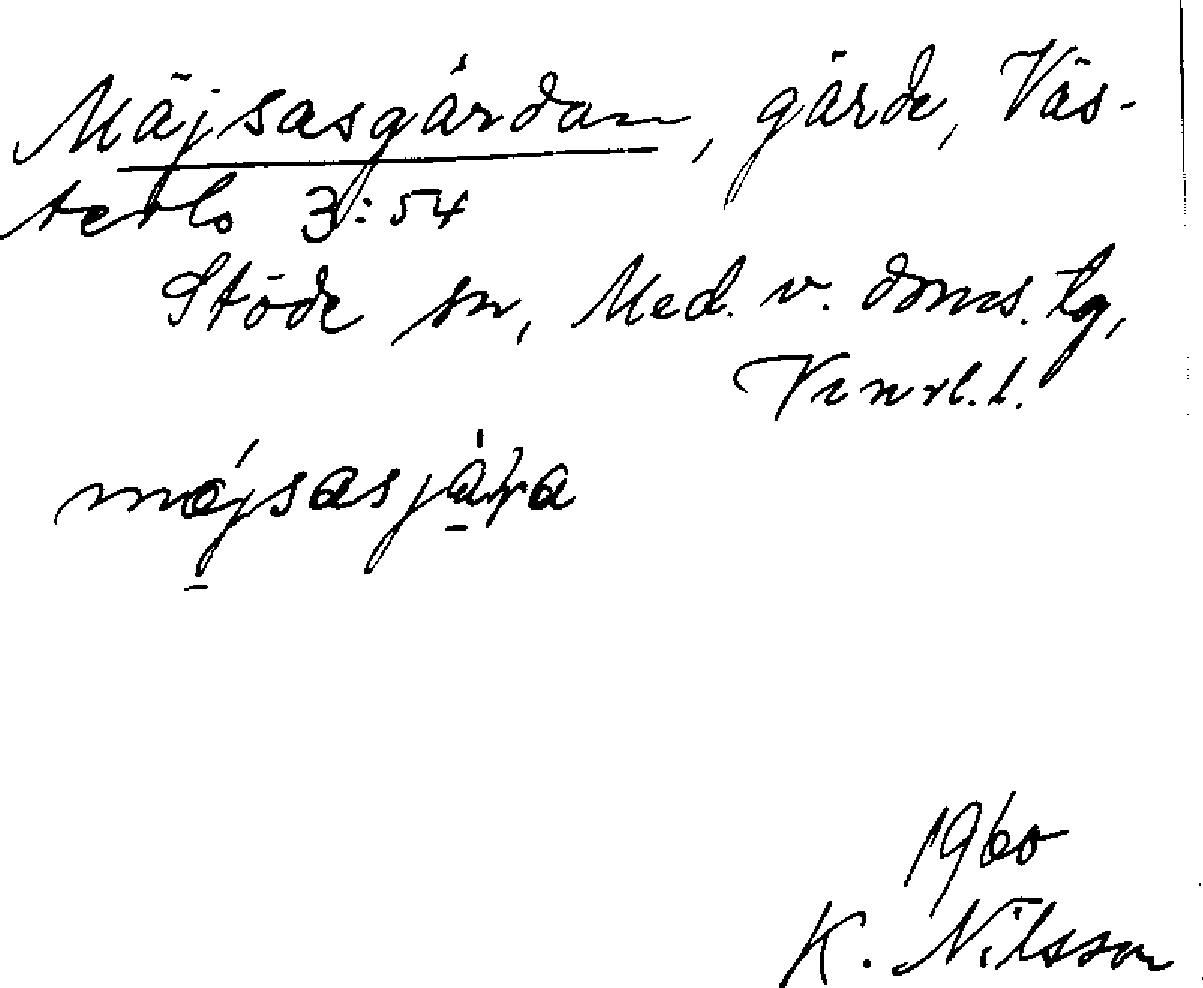 Mäjsasgärdan, gärde, Väs-
terlo 3:54
Stöde sn, Med. v. doms. tg,
Vnrl. l.
1960
K. Nilsson